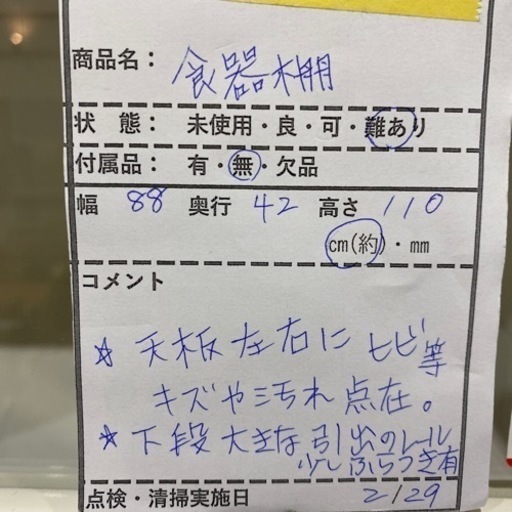 商品名： 食器棚
状　態： 未使用・良・可・難あり
付属品： 有・無・欠品
幅 88 奥行 42 高さ 110
cm(約)・mm
コメント
☆ 天板左右にヒビ等
キズや汚れ点在。
☆ 下段大きな引出のレール
少しふらつき有
点検・清掃実施日 2/29